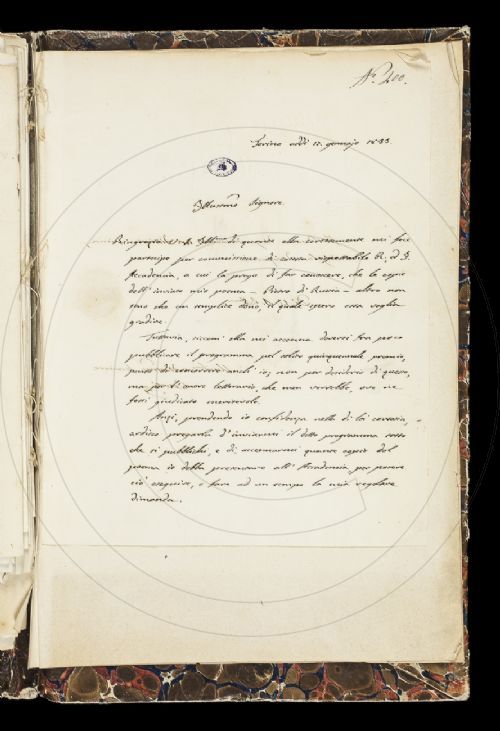 N.° 200.
Torino addì 12. gennajo 1833
Illustrmo Signore
Ringrazio V. S. Illma di quanto ella cortesemente mi fece
partecipe per commissione di cotesta rispettabile R. ed I.
Accademia, a cui la prego di far conoscere, che le copie
dell'inviato mio poema — Pietro di Russia — altro non
sono che un semplice dono, il quale spero essa voglia
gradire.
Tuttavia, siccome ella mi accenna doversi fra poco
pubblicare il programma pel solito quinquennale premio,
penso di concorrervi anch'io; non per desiderio di questo,
ma per l'onore letterario, che men verrebbe, ove ne
fossi giudicato meritevole.
Anzi, prendendo io confidenza nella di lei cortesia,
ardisco pregarla d'inviarmi il detto programma tosto
che si pubblichi, e di accennarmi quante copie del
poema io debba presentare all'Accademia, per potere
ciò eseguire, e fare ad un tempo la mia regolare
dimanda.